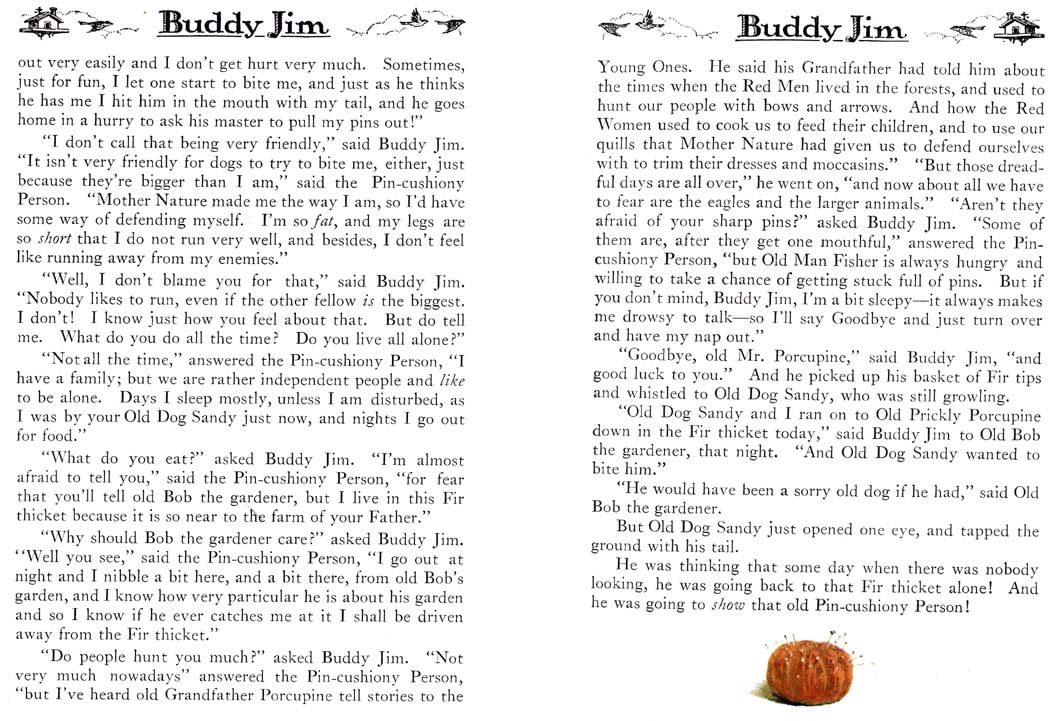 Buddy Jim
out very easily and I don't get hurt very much. Sometimes,
just for fun, I let one start to bite me, and just as he thinks
he has me I hit him in the mouth with my tail, and he goes
home in a hurry to ask his master to pull my pins out!”
“I don't call that being very friendly,” said Buddy Jim.
“It isn't very friendly for dogs to try to bite me, either, just
because they're bigger than I am,” said the Pin-cushiony
Person. “Mother Nature made me the way I am, so I'd have
some way of defending myself. I'm so fat, and my legs are
so short that I do not run very well, and besides, I don't feel
like running away from my enemies.”
“Well, I don't blame you for that,” said Buddy Jim.
“Nobody likes to run, even if the other fellow is the biggest.
I don't! I know just how you feel about that. But do tell
me. What do you do all the time? Do you live all alone?”
“Not all the time,” answered the Pin-cushiony Person, “I
have a family; but we are rather independent people and like
to be alone. Days I sleep mostly, unless I am disturbed, as
I was by your Old Dog Sandy just now, and nights I go out
for food.”
“What do you eat?” asked Buddy Jim. “I'm almost
afraid to tell you,” said the Pin-cushiony Person, “for fear
that you'll tell old Bob the gardener, but I live in this Fir
thicket because it is so near to the farm of your Father.”
“Why should Bob the gardener care?” asked Buddy Jim.
“Well you see,” said the Pin-cushiony Person, “I go out at
night and I nibble a bit here, and a bit there, from old Bob's
garden, and I know how very particular he is about his garden
and so I know if he ever catches me at it I shall be driven
away from the Fir thicket.”
“Do people hunt you much?” asked Buddy Jim. “Not
very much nowadays” answered the Pin-cushiony Person,
“but I've heard old Grandfather Porcupine tell stories to the
Buddy Jim
Young Ones. He said his Grandfather had told him about
the times when the Red Men lived in the forests, and used to
hunt our people with bows and arrows. And how the Red
Women used to cook us to feed their children, and to use our
quills that Mother Nature had given us to defend ourselves
with to trim their dresses and moccasins.” “But those dread-
ful days are all over,” he went on, “and now about all we have
to fear are the eagles and the larger animals.” “Aren't they
afraid of your sharp pins?” asked Buddy Jim. “Some of
them are, after they get one mouthful,” answered the Pin-
cushiony Person, “but Old Man Fisher is always hungry and
willing to take a chance of getting stuck full of pins. But if
you don't mind, Buddy Jim, I'm a bit sleepy—it always makes
me drowsy to talk—so I'll say Goodbye and just turn over
and have my nap out.”
“Goodbye, old Mr. Porcupine,” said Buddy Jim, “and
good luck to you.” And he picked up his basket of Fir tips
and whistled to Old Dog Sandy, who was still growling.
“Old Dog Sandy and I ran on to Old Prickly Porcupine
down in the Fir thicket today,” said Buddy Jim to Old Bob
the gardener, that night. “And Old Dog Sandy wanted to
bite him.”
“He would have been a sorry old dog if he had,” said Old
Bob the gardener.
But Old Dog Sandy just opened one eye, and tapped the
ground with his tail.
He was thinking that some day when there was nobody
looking, he was going back to that Fir thicket alone! And
he was going to show that old Pin-cushiony Person!